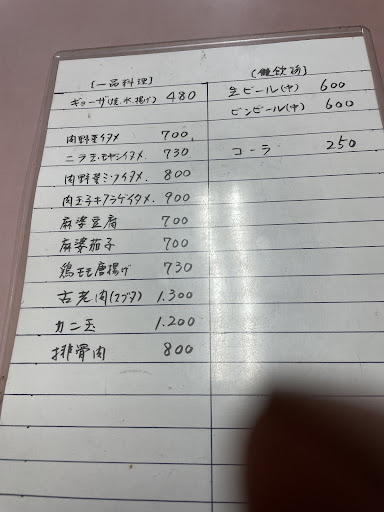 [一品料理]
ギョーザ(焼、水、揚げ) 480
肉野菜イタメ 700
ニラ玉、モヤシイタメ. 730
肉野菜ミソイタメ. 800
肉玉子キクラゲイタメ. 900
麻婆豆腐 700
麻婆茄子 700
鶏モモ唐揚げ 730
古老肉(スブタ) 1.300
カニ玉 1.200
排骨肉 800
生ビール(中) 600
ビンビール(中) 600
コーラ 250